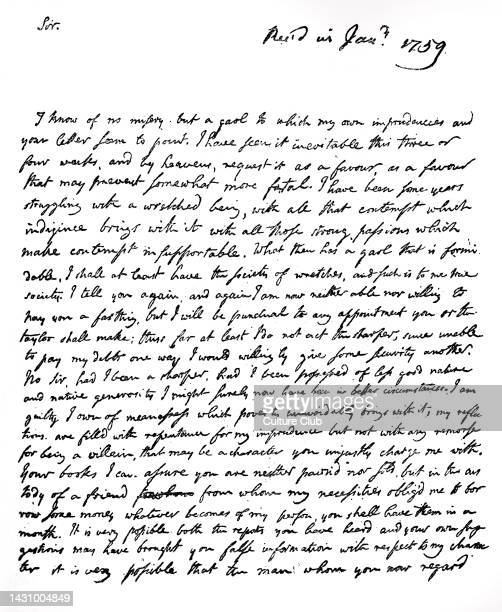 Sir.
Rec'd in Jan.ry 1759
I know of no misery but a gaol to which my own imprudencies and
your letter seem to point. I have seen it inevitable this three or
four weeks, and by heavens, request it as a favour, as a favour
that may prevent somewhat more fatal. I have been some years
struggling with a wretched being, with all that contempt which
indigence brings with it, with all those strong passions which
make contempt insupportable. What then has a gaol that is formi
dable, I shall at least have the society of wretches, and such is to me true
society. I tell you again and again I am now neither able nor willing to
pay you a farthing, but I will be punctual to any appointment you or the
taylor shall make; thus far at least I do not act the sharper, since unable
to pay my debts one way I would willingly give some security another.
No Sir, had I been a sharper, had I been possessed of less good nature
and native generosity I might surely now have been in better circumstances. I am
guilty I own of meannesses which poverty unavoidably brings with it, my reflec
tions are filled with repentance for my imprudence but not with any remorse
for being a villain, that may be a character you unjustly charge me with.
Your books I can assure you are neither pawn'd nor sold, but in the cus
tody of a friend from whom my necessities oblig'd me to bor
row some money, whatever becomes of my person, you shall have them in a
month. It is very possible both the reports you have heard and your own sug
gestions may have brought you false information with respect to my charac
ter it is very possible that the man whom you now regard
gettyimages
Culture Club
1431004849